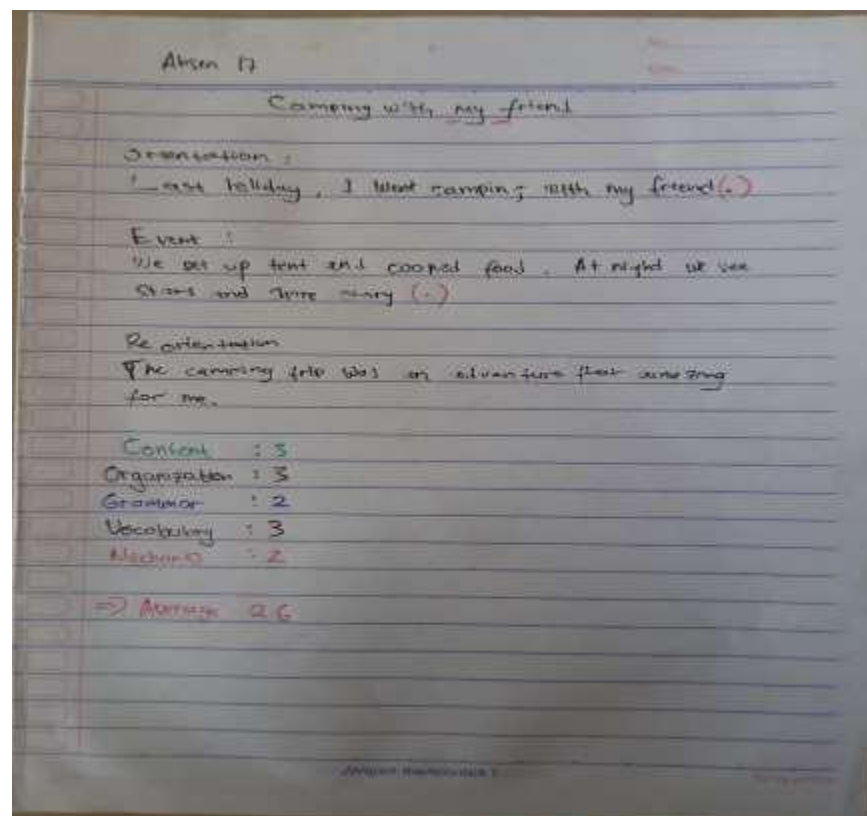 Absen 17
Camping with my friend
Orientation :
Last holiday, I went camping with my friend (.)
Event :
We set up tent and cooked food. At night we see
stars and (.)
Re orientation
The camping trip was an adventure that amazing
for me.
Content : 3
Organization : 3
Grammar : 2
Vocabulary : 3
Mechanic : 2
=> Average 2.6